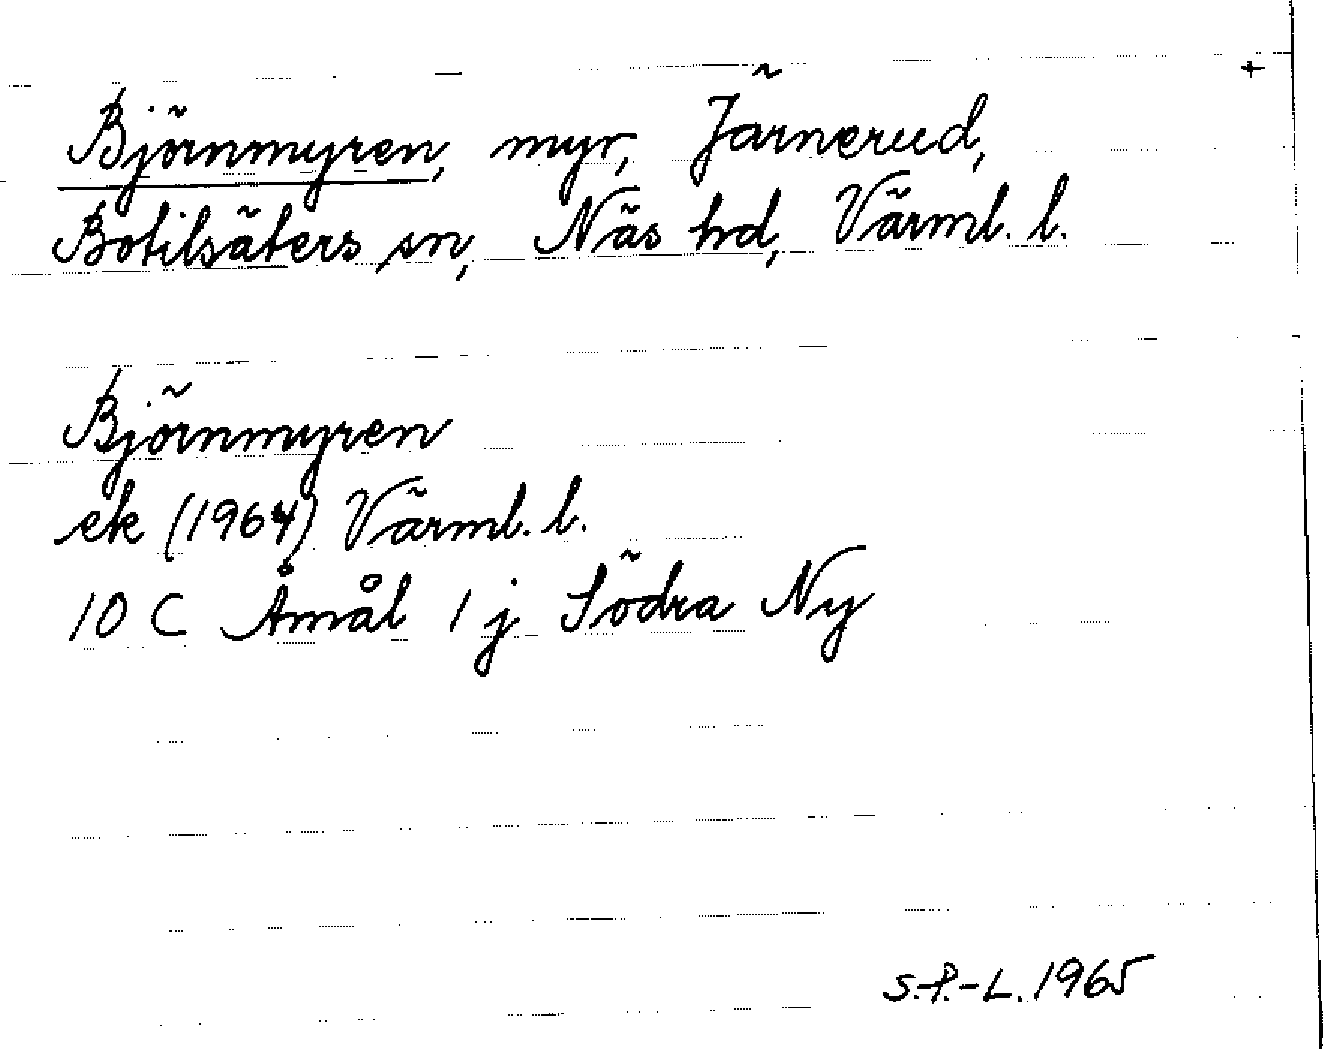 +
Björnmyren, myr, Järnerud,
Botilsäters sn, Näs hd, Värml. l.
Björnmyren
ek (1964) Värml. l.
10 C Åmål 1 j Södra Ny
S.-P.-L. 1965